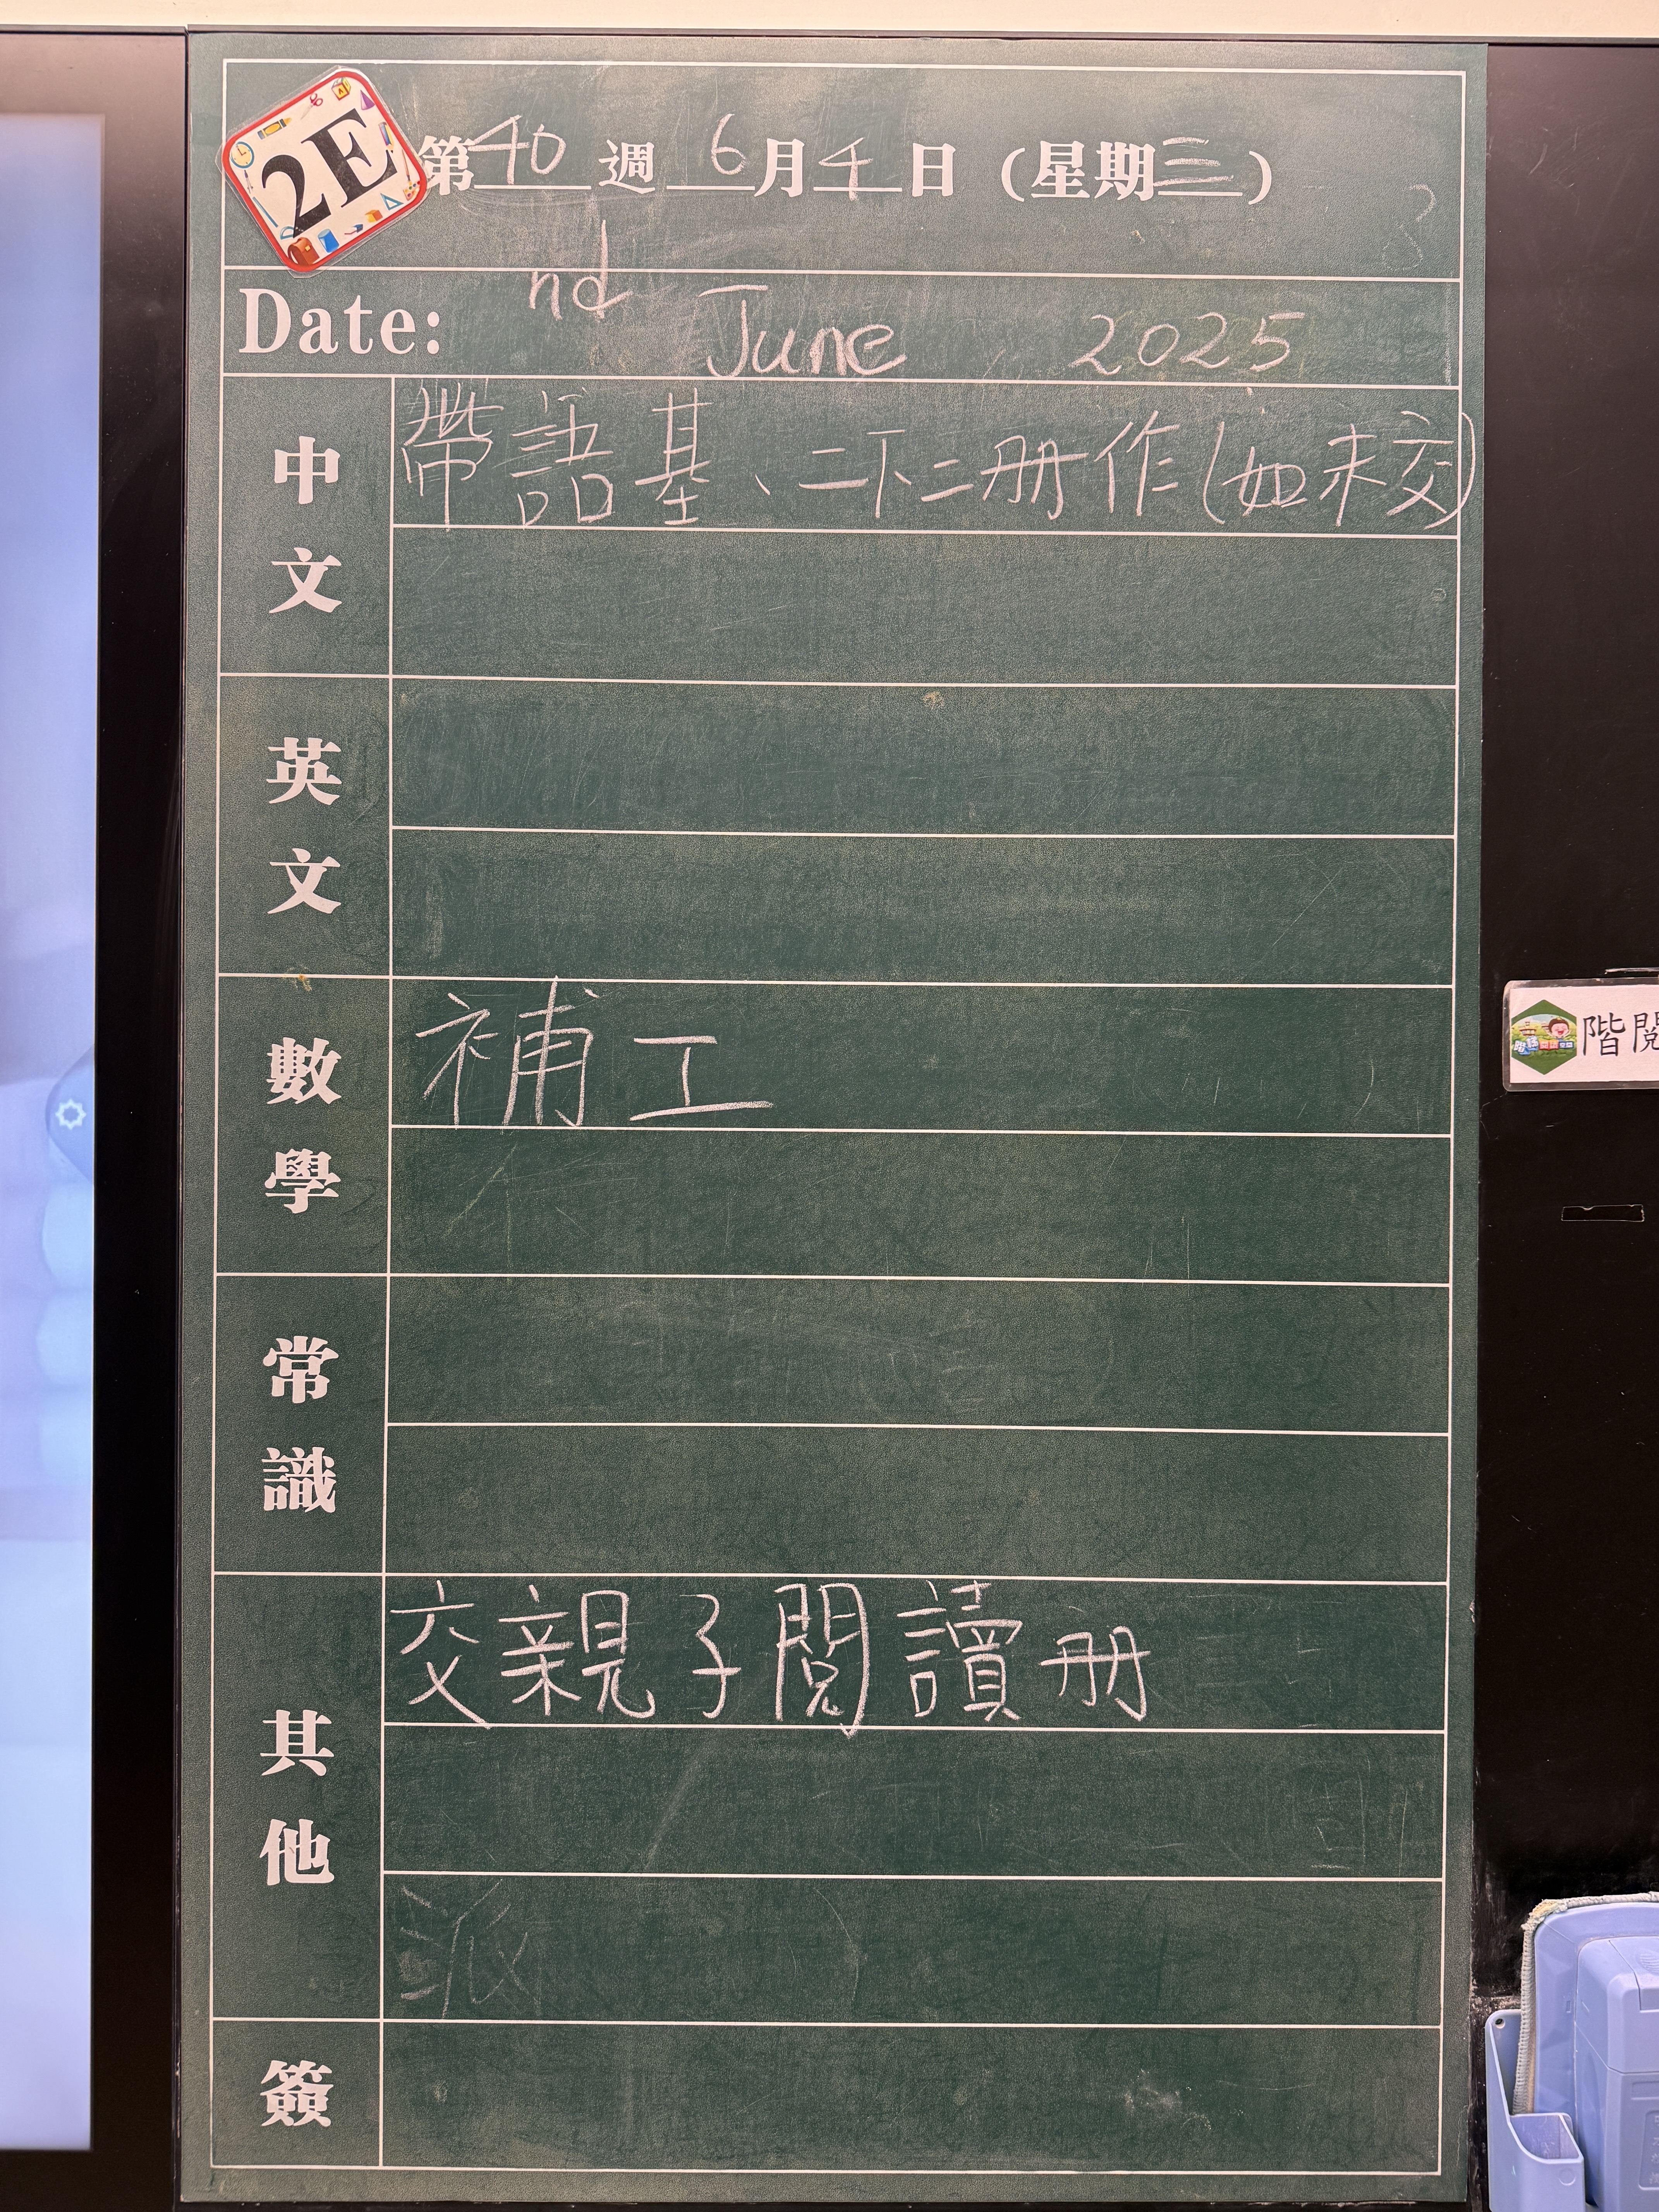 2E
第40週 6月4日（星期三）
nd
Date: June 2025
中文
帶語基、二下二冊作(如未交)
英文
數學
補工
常識
其他
交親子閱讀冊
派
簽
階閱